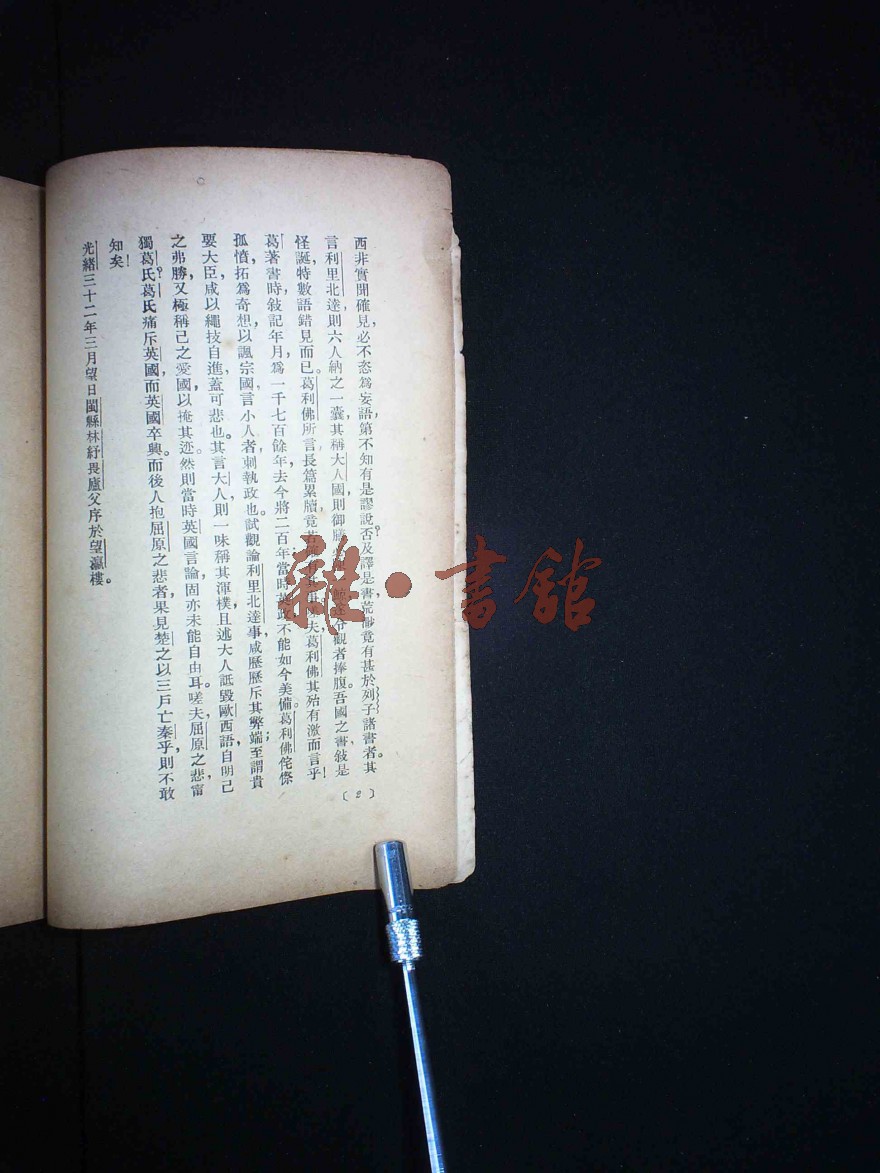 西非實聞確見,必不恣爲妄語,第不知有是謬說否?及譯是書,荒渺竟有甚於列子諸書者。其
言利里北達,則六人納之一囊,其稱大人國,則御 令觀者捧腹。吾國之書,敍是
怪誕,特數語錯見而已。葛利佛所言,長篇累牘,竟若 夫葛利佛其殆有激而言乎!
葛著書時,敍記年月,爲一千七百餘年,去今將二百年,當時英政不能如今美備。葛利佛侘傺
孤憤,拓爲奇想,以諷宗國。言小人者,刺執政也。試觀論利里北達事,咸歷歷斥其弊端;至謂貴
要大臣,咸以繩技自進,蓋可悲也。其言大人,則一味稱其渾樸,且述大人詆毀歐西語,自明己
之弗勝,又極稱己之愛國,以掩其迹。然則當時英國言論,固亦未能自由耳。嗟夫,屈原之悲,甯
獨葛氏?葛氏痛斥英國,而英國卒興。而後人抱屈原之悲者,果見楚之以三戶亡秦乎,則不敢
知矣!
光緒三十二年三月望日閩縣林紓畏廬父序於望瀛樓。
(2)
雜·書館